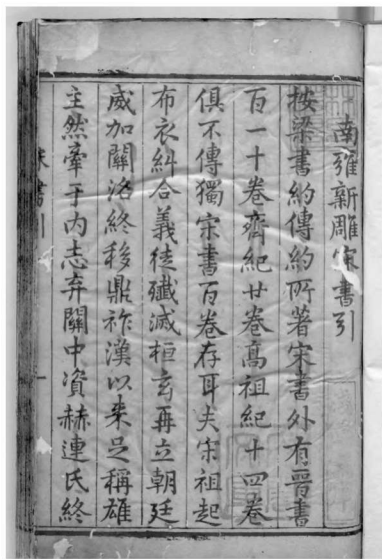 南雍新雕宋書引
按梁書約傳約所著宋書外有晉書
百一十卷齊紀廿卷高祖紀十四卷
俱不傳獨宋書百卷存耳夫宋祖起
布衣糾合義徒殲滅桓玄再立朝廷
威加關洛終移鼎祚漢以來足稱雄
主然牽于內志弃關中資赫連氏終
宋書引
一